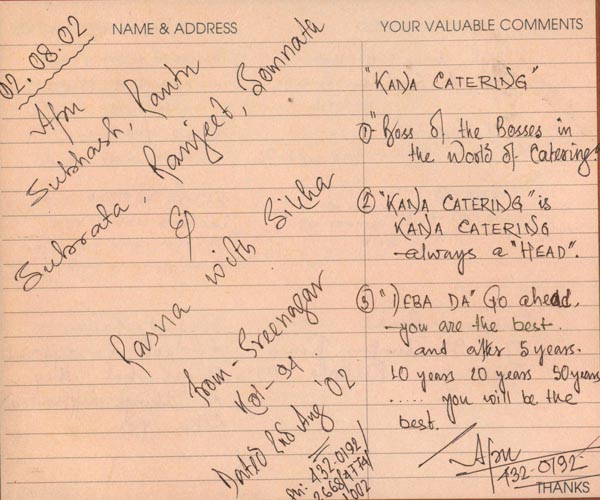 NAME & ADDRESS
02.08.02
Apu
Subhash, Rantu
Subrata, Ranjeet, Somnath
&
Rasna with Sikha
from - Sreenagar
Kol-94.
Dated 2nd Aug '02
Ph: 432-0192/
YOUR VALUABLE COMMENTS
"KANA CATERING"
① "Boss of the Bosses in
the World of Catering."
② "KANA CATERING" is
KANA CATERING
-always a "HEAD".
③ "DEBA DA" Go ahead,
-you are the best.
and after 5 years.
10 years 20 years 50 years
..... you will be the
best.
Apu
432-0192-
THANKS